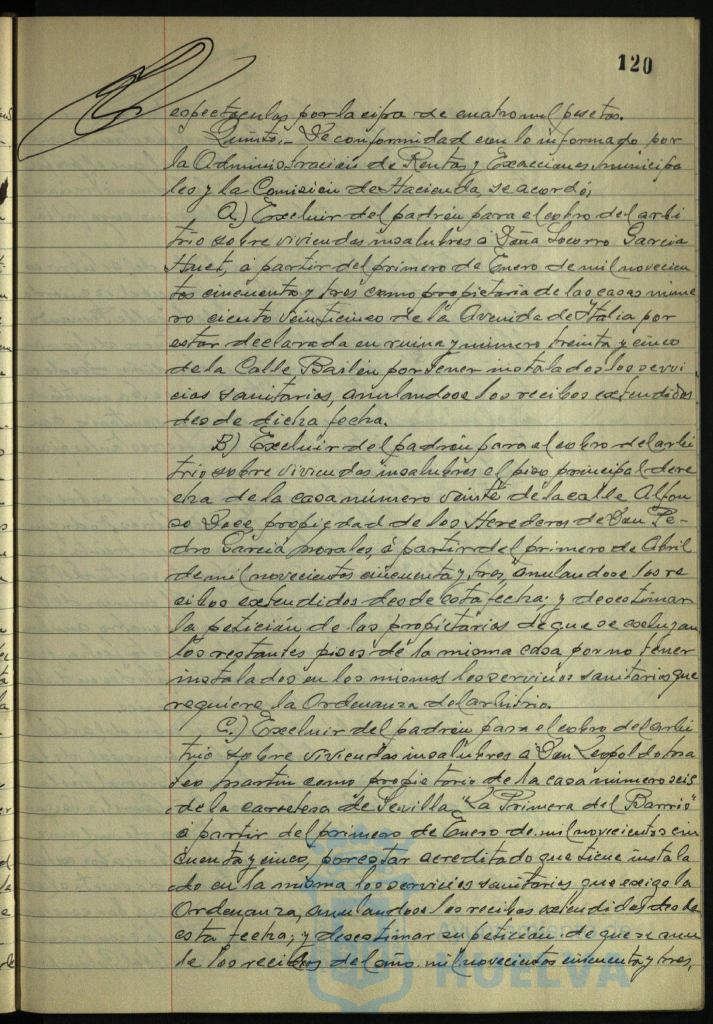 120
espectaculos por la cifra de cuatro mil pesetas.
Quinto.- De conformidad con lo informado por
la Administración de Rentas y Exacciones municipa-
les y la Comisión de Hacienda se acordó;
A.) Excluir del padrón para el cobro del arbi-
trio sobre viviendas insalubres á Doña Socorro Garcia
Huet, á partir del primero de Enero de mil novecien-
tos cincuenta y tres como propietaria de las casas núme-
ro ciento veinticinco de la Avenida de Italia por
estar declarada en ruina y número treinta y cinco
de la Calle Bailén por tener instalados los servi-
cios sanitarios, anulandose los recibos extendidos
desde dicha fecha.
B) Excluir del padrón para el cobro del arbi-
trio sobre viviendas insalubres el piso principal dere-
cha de la casa número veinte de la calle Alfon-
so Doce, propiedad de los Herederos de Don Pe-
dro Garcia Morales, á partir del primero de Abril
de mil novecientos cincuenta y tres, anulandose los re-
cibos extendidos desde esta fecha; y desestimar
la petición de los propietarios de que se excluyan
los restantes pisos de la misma casa por no tener
instalados en los mismos los servicios sanitarios que
requiere la Ordenanza del arbitrio.
C.) Excluir del padrón para el cobro del arbi-
trio sobre viviendas insalubres á Don Leopoldo Ma-
teo Martin como propietario de la casa número seis
de la carretera de Sevilla "La Primera del Barrio"
á partir del primero de Enero de mil novecientos cin-
cuenta y cinco, por estar acreditado que tiene instala-
do en la misma los servicios sanitarios que exige la
Ordenanza, anulandose los recibos extendidos desde
esta fecha; y desestimar su petición de que se anu-
le los recibos del año mil novecientos cincuenta y tres,
HUELVA